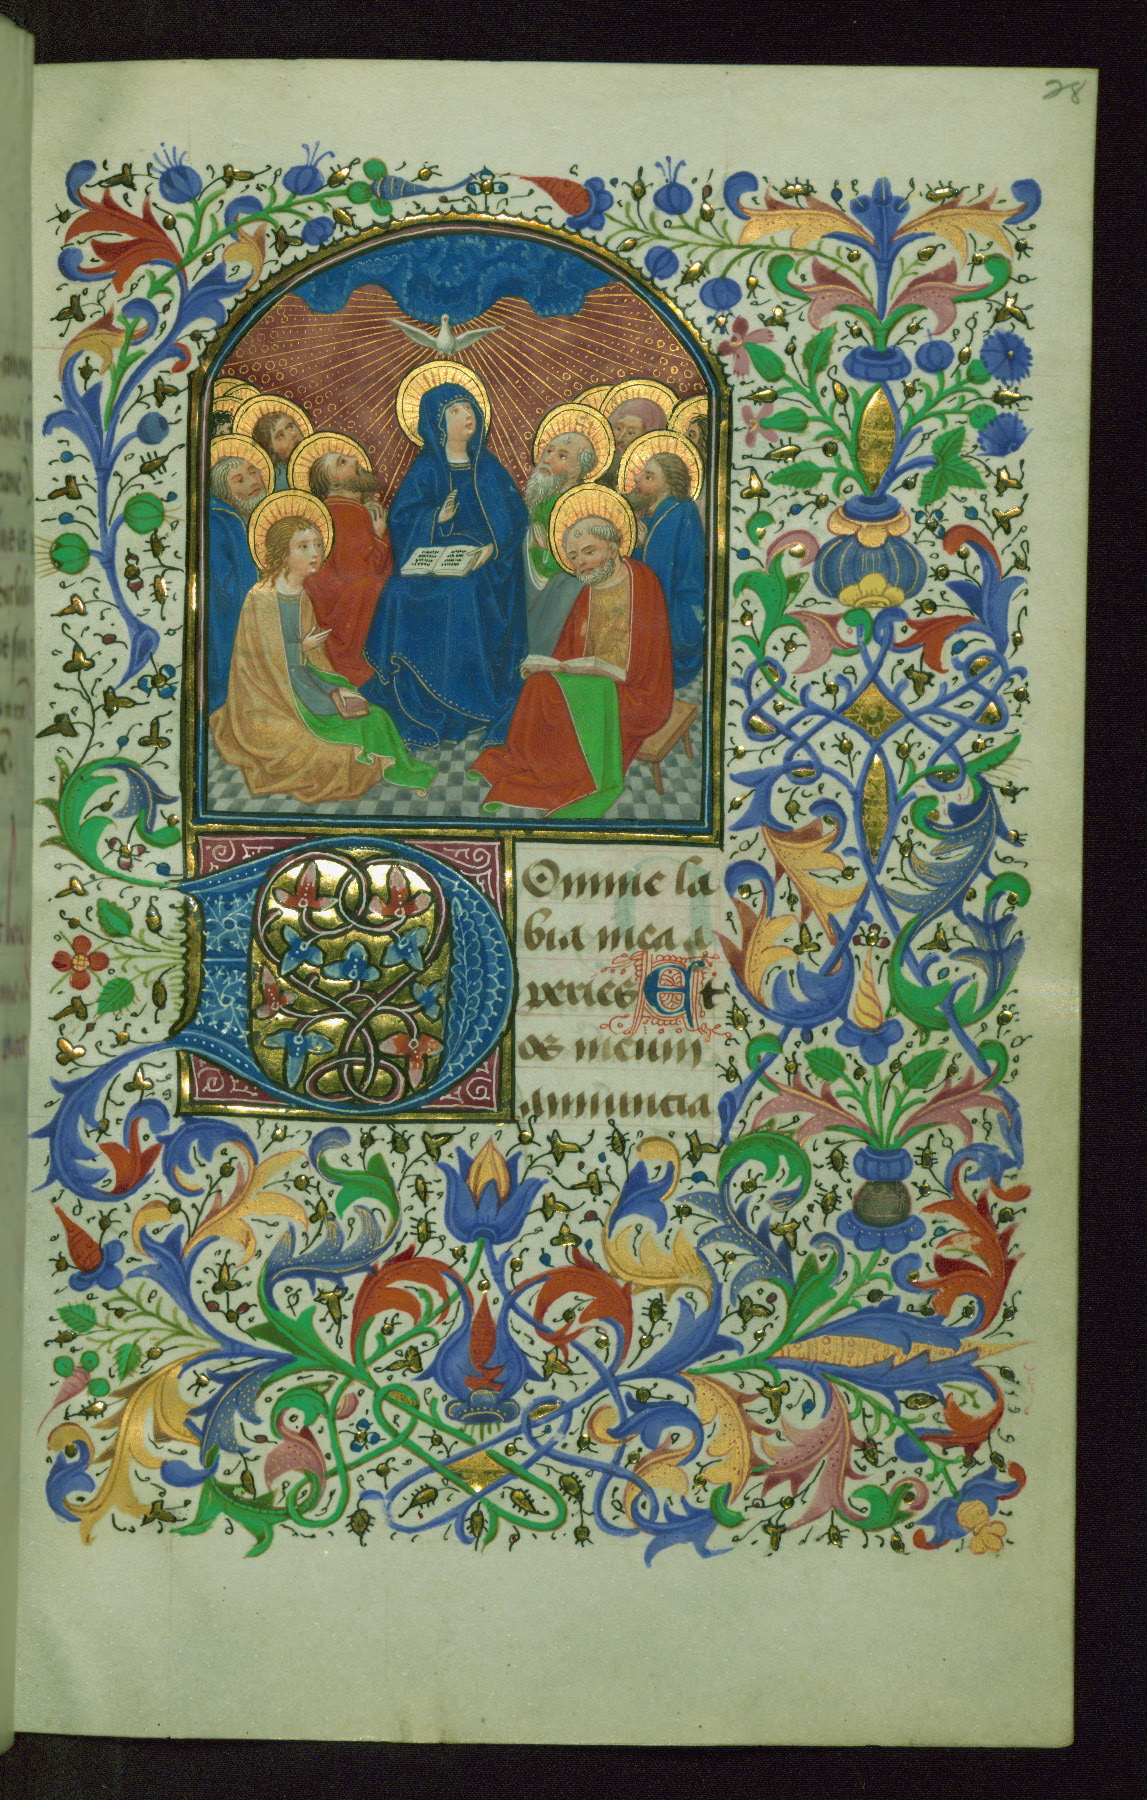 28
Domine la
bia mea a
peries Et
os meum
annuncia